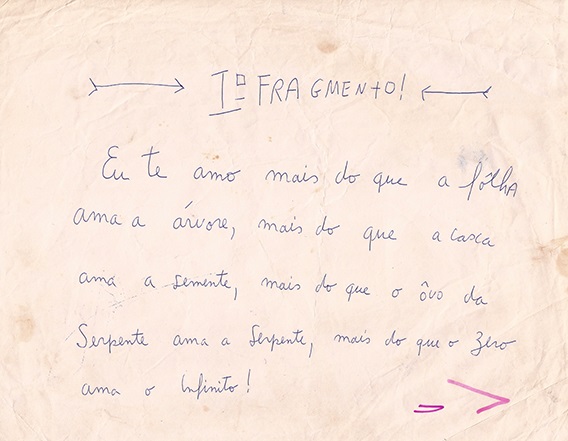 Iº FRAGMENTO!
Eu te amo mais do que a fôlha
ama a árvore, mais do que a casca
ama a semente, mais do que o ôvo da
Serpente ama a Serpente, mais do que o Zero
ama o Infinito!